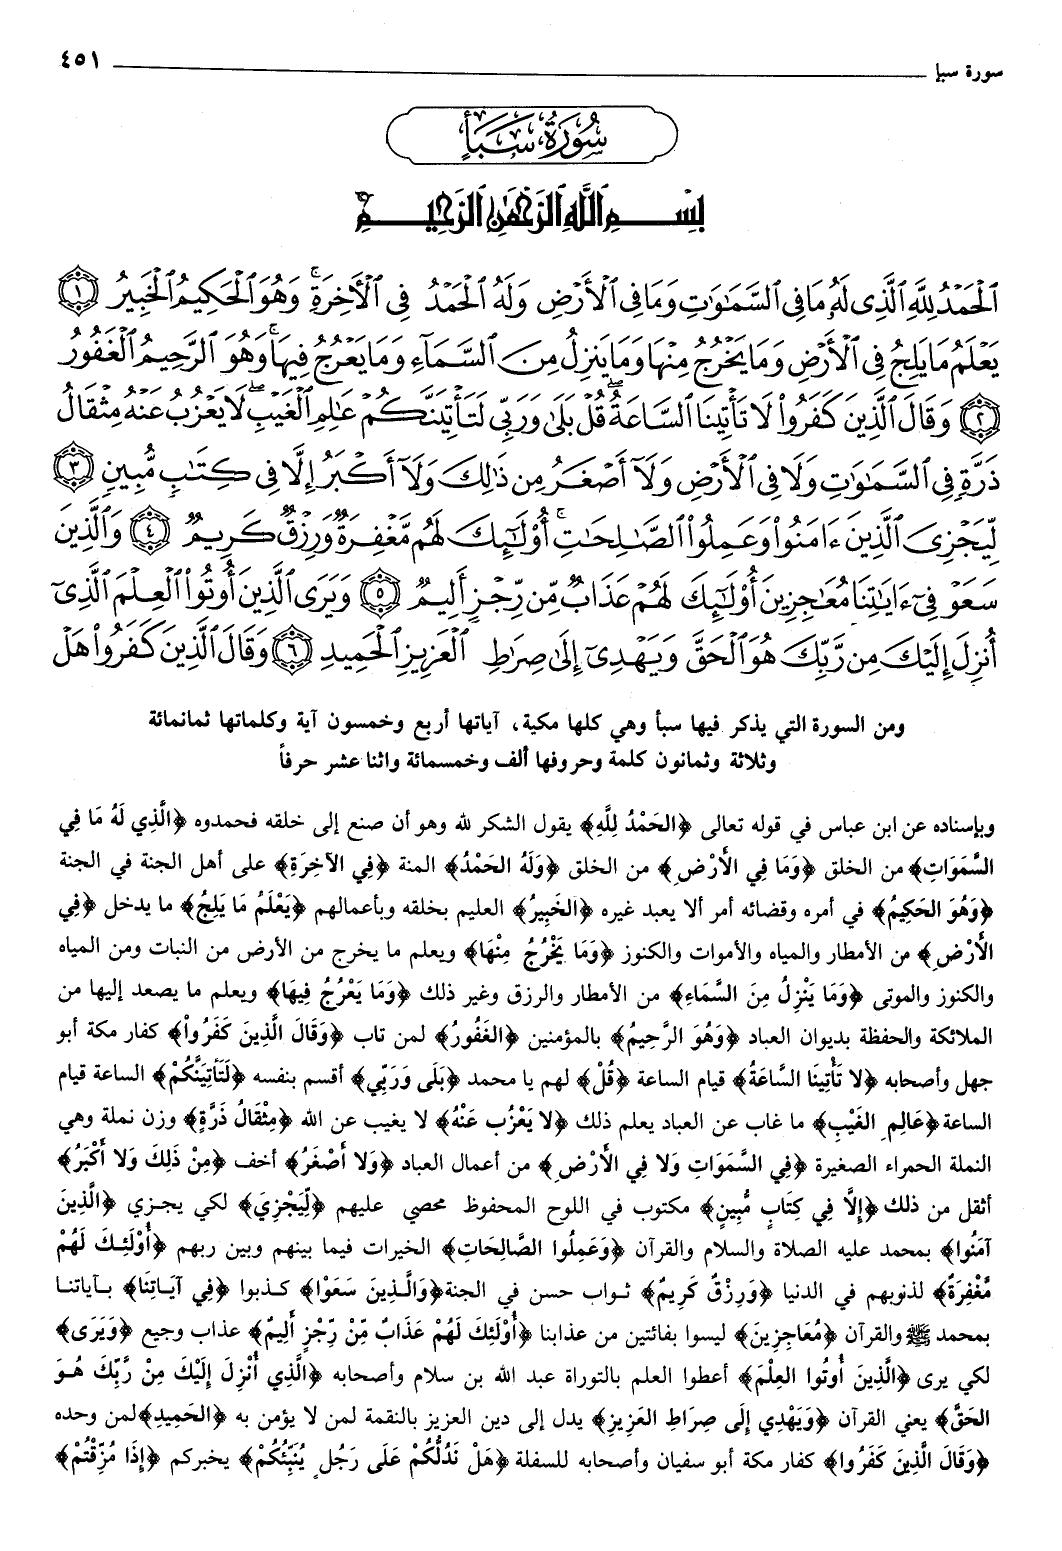 سورة سبإ ٤٥١
سُورَةُ سَبَأٍ
بِسْمِ اللَّهِ الرَّحْمَٰنِ الرَّحِيمِ
الْحَمْدُ لِلَّهِ الَّذِي لَهُ مَا فِي السَّمَٰوَٰتِ وَمَا فِي الْأَرْضِ وَلَهُ الْحَمْدُ فِي الْآخِرَةِ ۚ وَهُوَ الْحَكِيمُ الْخَبِيرُ ۝١
يَعْلَمُ مَا يَلِجُ فِي الْأَرْضِ وَمَا يَخْرُجُ مِنْهَا وَمَا يَنزِلُ مِنَ السَّمَآءِ وَمَا يَعْرُجُ فِيهَا ۚ وَهُوَ الرَّحِيمُ الْغَفُورُ
۝٢ وَقَالَ الَّذِينَ كَفَرُوا۟ لَا تَأْتِينَا السَّاعَةُ ۖ قُلْ بَلَىٰ وَرَبِّي لَتَأْتِيَنَّكُمْ عَٰلِمِ الْغَيْبِ ۖ لَا يَعْزُبُ عَنْهُ مِثْقَالُ
ذَرَّةٍ فِي السَّمَٰوَٰتِ وَلَا فِي الْأَرْضِ وَلَآ أَصْغَرُ مِن ذَٰلِكَ وَلَآ أَكْبَرُ إِلَّا فِي كِتَٰبٍ مُّبِينٍ ۝٣
لِّيَجْزِيَ الَّذِينَ ءَامَنُوا۟ وَعَمِلُوا۟ الصَّٰلِحَٰتِ ۚ أُو۟لَٰٓئِكَ لَهُم مَّغْفِرَةٌ وَرِزْقٌ كَرِيمٌ ۝٤ وَالَّذِينَ
سَعَوْ فِيٓ ءَايَٰتِنَا مُعَٰجِزِينَ أُو۟لَٰٓئِكَ لَهُمْ عَذَابٌ مِّن رِّجْزٍ أَلِيمٌ ۝٥ وَيَرَى الَّذِينَ أُوتُوا۟ الْعِلْمَ الَّذِيٓ
أُنزِلَ إِلَيْكَ مِن رَّبِّكَ هُوَ الْحَقَّ وَيَهْدِيٓ إِلَىٰ صِرَٰطِ الْعَزِيزِ الْحَمِيدِ ۝٦ وَقَالَ الَّذِينَ كَفَرُوا۟ هَلْ
ومن السورة التي يذكر فيها سبأ وهي كلها مكية، آياتها أربع وخمسون آية وكلماتها ثمانمائة
وثلاثة وثمانون كلمة وحروفها ألف وخمسمائة واثنا عشر حرفاً
وبإسناده عن ابن عباس في قوله تعالى ﴿الحَمْدُ لِلَّهِ﴾ يقول الشكر لله وهو أن صنع إلى خلقه فحمدوه ﴿الَّذِي لَهُ مَا فِي
السَّمَوَاتِ﴾ من الخلق ﴿وَمَا فِي الأَرْضِ﴾ من الخلق ﴿وَلَهُ الحَمْدُ﴾ المنة ﴿فِي الآخِرَةِ﴾ على أهل الجنة في الجنة
﴿وَهُوَ الحَكِيمُ﴾ في أمره وقضائه أمر ألا يعبد غيره ﴿الخَبِيرُ﴾ العليم بخلقه وبأعمالهم ﴿يَعْلَمُ مَا يَلِجُ﴾ ما يدخل ﴿فِي
الأَرْضِ﴾ من الأمطار والمياه والأموات والكنوز ﴿وَمَا يَخْرُجُ مِنْهَا﴾ ويعلم ما يخرج من الأرض من النبات ومن المياه
والكنوز والموتى ﴿وَمَا يَنْزِلُ مِنَ السَّمَاءِ﴾ من الأمطار والرزق وغير ذلك ﴿وَمَا يَعْرُجُ فِيهَا﴾ ويعلم ما يصعد إليها من
الملائكة والحفظة بديوان العباد ﴿وَهُوَ الرَّحِيمُ﴾ بالمؤمنين ﴿الغَفُورُ﴾ لمن تاب ﴿وَقَالَ الَّذِينَ كَفَرُوا﴾ كفار مكة أبو
جهل وأصحابه ﴿لا تَأْتِينَا السَّاعَةُ﴾ قيام الساعة ﴿قُلْ﴾ لهم يا محمد ﴿بَلَى وَرَبِّي﴾ أقسم بنفسه ﴿لَتَأْتِيَنَّكُمْ﴾ الساعة قيام
الساعة ﴿عَالِمِ الغَيْبِ﴾ ما غاب عن العباد يعلم ذلك ﴿لا يَعْزُب عَنْهُ﴾ لا يغيب عن الله ﴿مِثْقَالُ ذَرَّةٍ﴾ وزن نملة وهي
النملة الحمراء الصغيرة ﴿فِي السَّمَوَاتِ وَلا فِي الأَرْضِ﴾ من أعمال العباد ﴿وَلا أَصْغَرُ﴾ أخف ﴿مِنْ ذَلِكَ وَلا أَكْبَرُ﴾
أثقل من ذلك ﴿إِلَّا فِي كِتَابٍ مُّبِينٍ﴾ مكتوب في اللوح المحفوظ محصي عليهم ﴿لِّيَجْزِيَ﴾ لكي يجزي ﴿الَّذِينَ
آمَنُوا﴾ بمحمد عليه الصلاة والسلام والقرآن ﴿وَعَمِلُوا الصَّالِحَاتِ﴾ الخيرات فيما بينهم وبين ربهم ﴿أُوْلَئِكَ لَهُمْ
مَّغْفِرَةٌ﴾ لذنوبهم في الدنيا ﴿وَرِزْقٌ كَرِيمٌ﴾ ثواب حسن في الجنة ﴿وَالَّذِينَ سَعَوْا﴾ كذبوا ﴿فِي آيَاتِنَا﴾ بآياتنا
بمحمد ﷺ والقرآن ﴿مُعَاجِزِينَ﴾ ليسوا بفائتين من عذابنا ﴿أُوْلَئِكَ لَهُمْ عَذَابٌ مِّنْ رِّجْزٍ أَلِيمٌ﴾ عذاب وجيع ﴿وَيَرَى﴾
لكي يرى ﴿الَّذِينَ أُوتُوا العِلْمَ﴾ أعطوا العلم بالتوراة عبد الله بن سلام وأصحابه ﴿الَّذِي أُنْزِلَ إِلَيْكَ مِنْ رَّبِّكَ هُوَ
الحَقَّ﴾ يعني القرآن ﴿وَيَهْدِي إِلَى صِرَاطِ العَزِيزِ﴾ يدل إلى دين العزيز بالنقمة لمن لا يؤمن به ﴿الحَمِيدِ﴾ لمن وحده
﴿وَقَالَ الَّذِينَ كَفَرُوا﴾ كفار مكة أبو سفيان وأصحابه للسفلة ﴿هَلْ نَدُلُّكُمْ عَلَى رَجُلٍ يُنَبِّئُكُمْ﴾ يخبركم ﴿إِذَا مُزِّقْتُمْ﴾